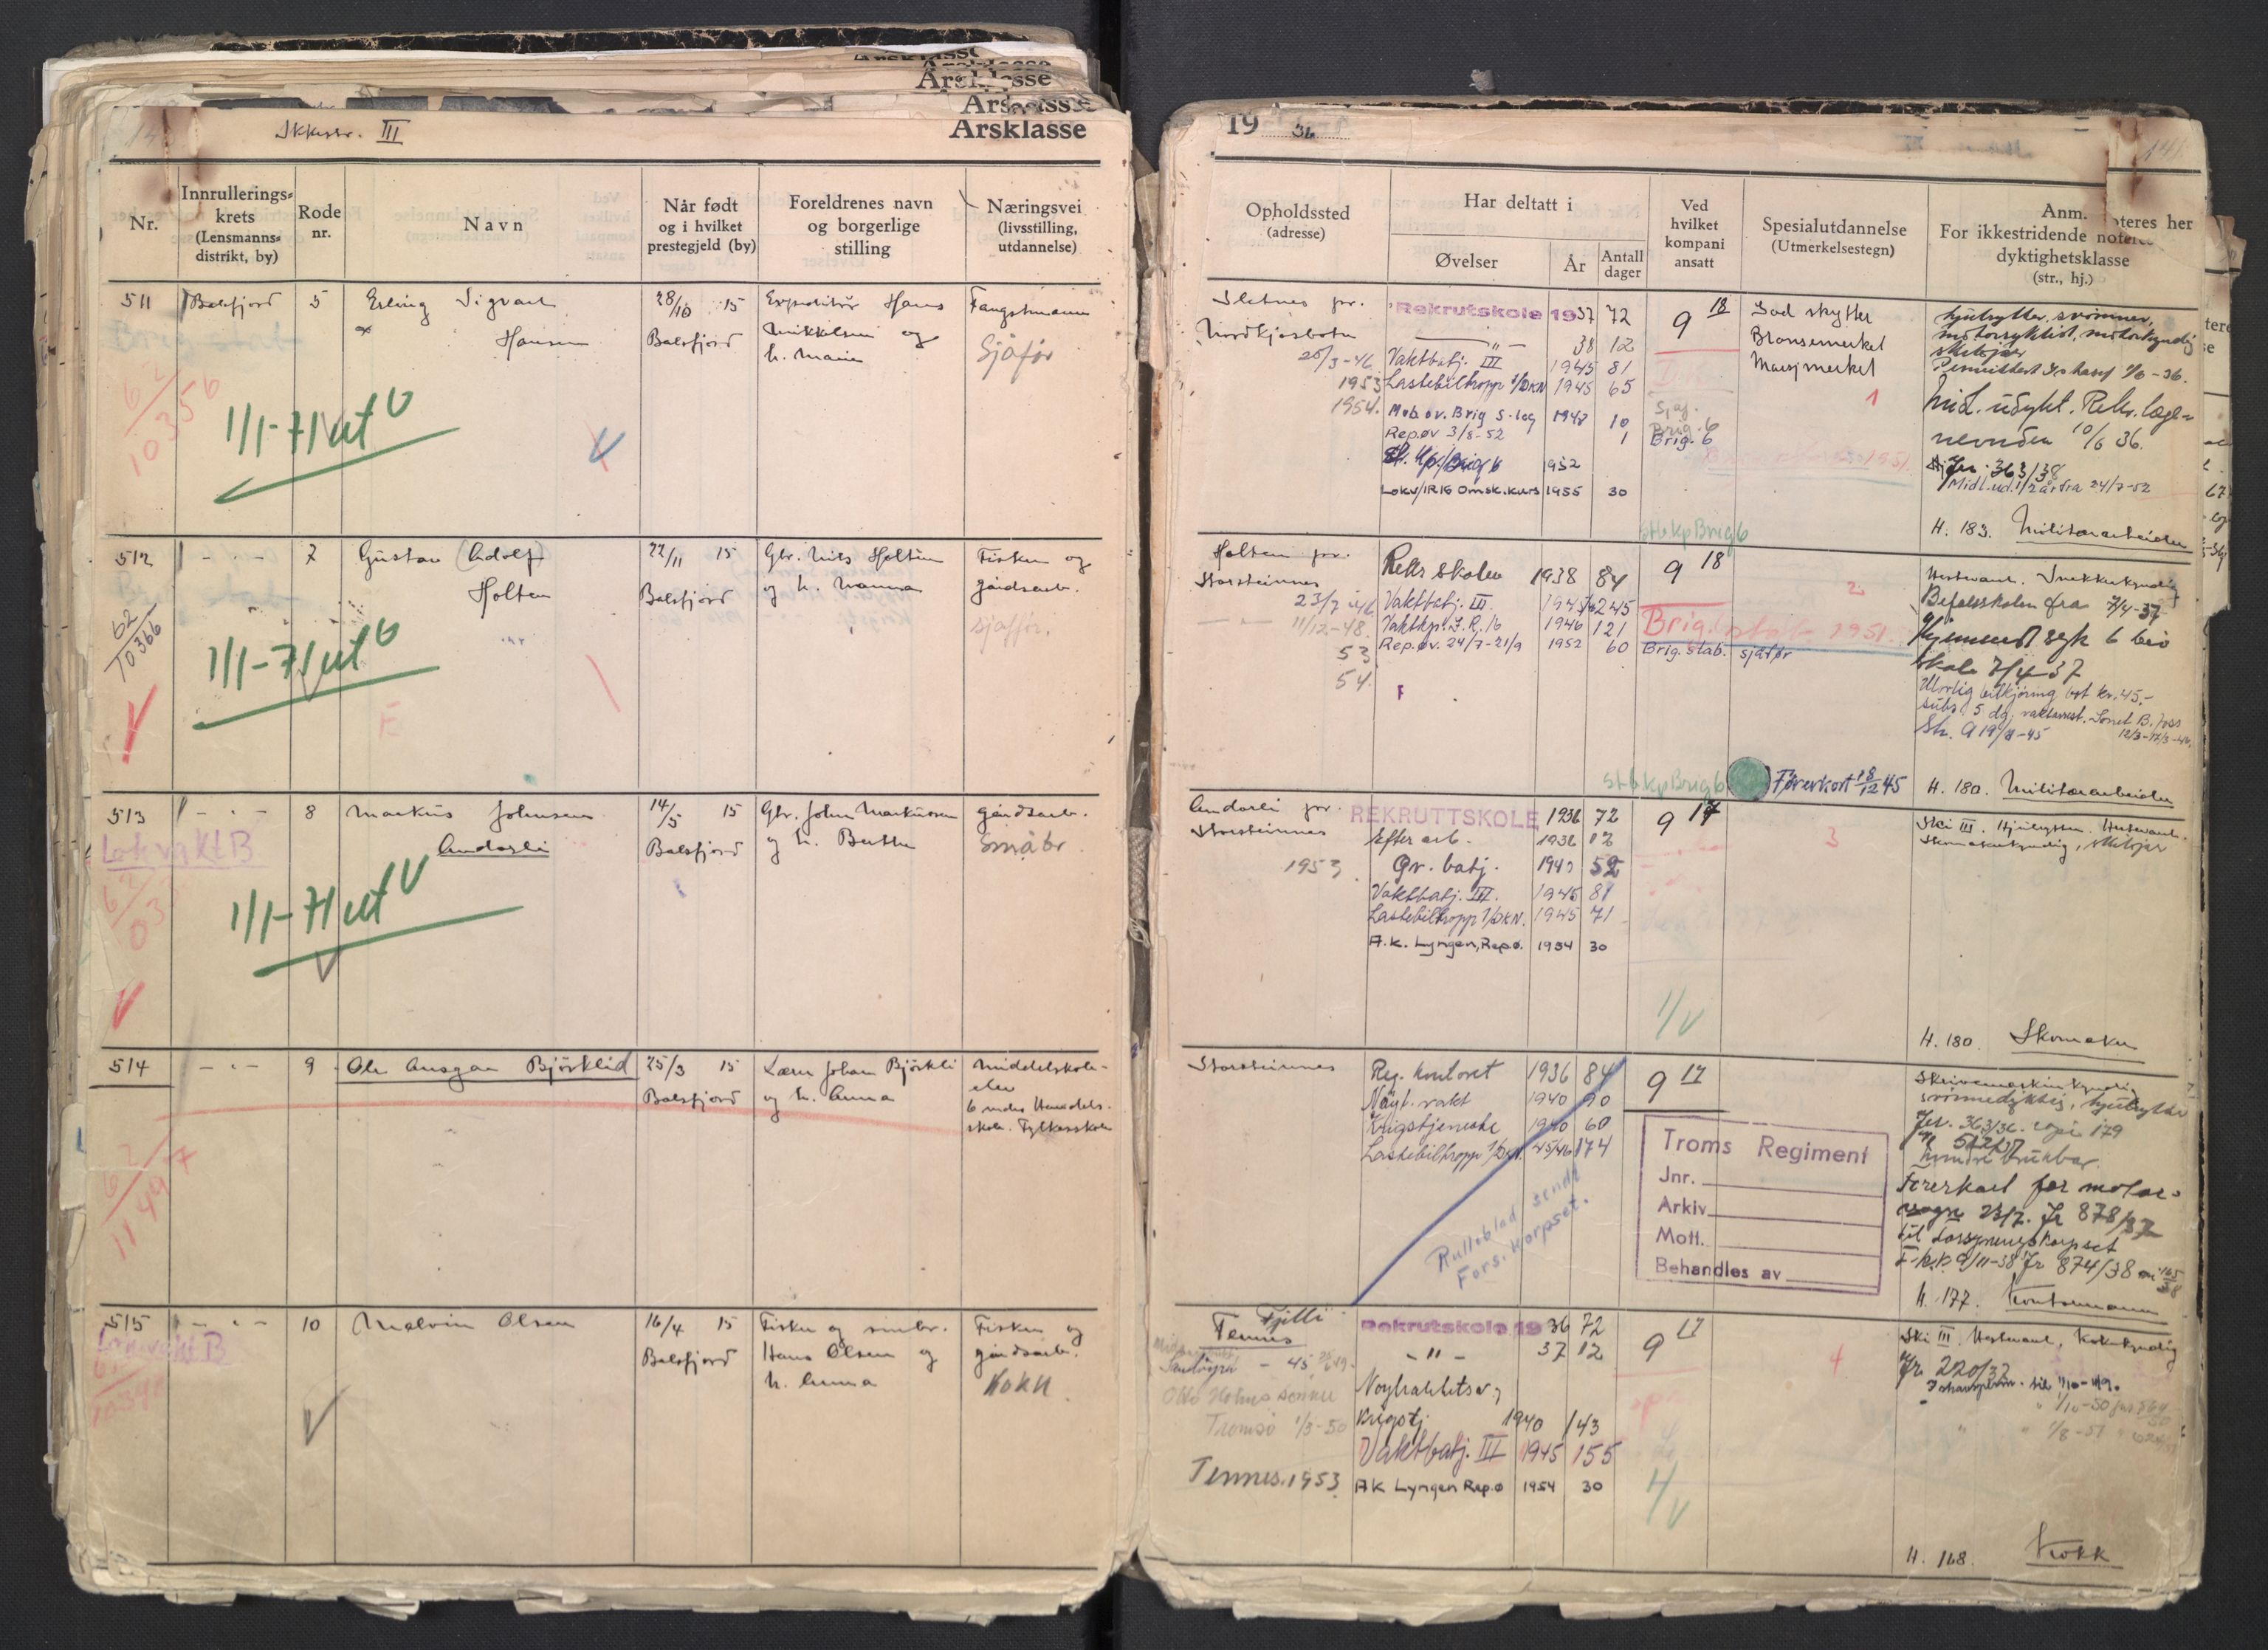 Ikkestr. III
Årsklasse
Nr.
Innrullerings-
krets
(Lensmanns-
distrikt, by)
Rode
nr.
Navn
Når født
og i hvilket
prestegjeld (by)
Foreldrenes navn
og borgerlige
stilling
Næringsvei
(livsstilling,
utdannelse)
511 Balsfjord 5 Erling Sigvart
Hansen
28/10 15
Balsfjord
Expeditør Hans
Mikkelsen og
h. Marie
Fangstmann
Sjåfør
62/10356
1/1-71 ut
512 - " - 7 Gustav (Adolf)
Holten
22/11 15
Balsfjord
Gbr. Nils Holten
og h. Nanna
Fisker og
gårdsarb.
sjåffør.
62/10366
1/1-71 ut
E
513 - " - 8 Markus Johnsen
Andorli
14/5 15
Balsfjord
Gbr. John Markussen
og h. Berthe
gårdsarb.
Småbr.
Lokvakt B
1/1-71 ut
514 - " - 9 Ole Ansgar Bjørklid
25/3 15
Balsfjord
Lærer Johan Bjørkli
og h. Anna
Middelskole-
elev
6 mdrs Handels-
skole. Fylkesskole
62/11497
515 - " - 10 Malvin Olsen
16/4 15
Balsfjord
Fisker og småbr.
Hans Olsen og
h. Anna
Fisker og
gårdsarb.
Kokk
Lokvakt B
1936
Opholdssted
(adresse)
Har deltatt i
Øvelser
År
Antall
dager
Ved
hvilket
kompani
ansatt
Spesialutdannelse
(Utmerkelsestegn)
Anm.
For ikkestridende noteres her
dyktighetsklasse
(str., hj.)
Sletnes pr.
Nordkjosbotn
25/3-46
1953
1954.
Rekrutskole 1937 72
- " - 38 12
Vaktbatj. III 1945 81
Lastebiltropp 1/DKN 1945 65
Mob.øv. Brig S. 1948 10
Rep.øv 3/8-52 1
1952
Lokv/IR16 Omsk.kurs 1955 30
9 18
Brig. 6
Brig. 6
God skytter
Bronsemerket
Marsjmerket
1
hjulrytter, svømmer,
motorsyklist, motorkyndig
skiløper
Midl. udykt. Rekr. læge-
nevnden 10/6 36.
Jnr. 363/38
Midl.ud. 1/2 år fra 24/7-52
H. 183. Militærarbeider
Stbkp Brig 6
Holten pr.
Storsteinnes
23/7-46
- " - 11/12-48.
53
54.
Rekr skolen 1938 84
Vaktbatj. III. 1945/46 245
Vaktkp. I.R. 16 1946 121
Rep.øv. 24/7-21/9 1952 60
9 18
Brig. stab 1951.
Brig. stab. sjåfør
2
Hestevant. Snekkerkyndig
Befalsskolen fra 7/4-37
Hjemsendt syk 6 bris
skole 7/4-37
Ulovlig bilkjøring bøt kr. 45,-
subs. 5 dg. vaktarrest. Sonet B.foss
12/3-17/3-46.
H. 180. Militærarbeider
Stbkp Brig 6
Førerkort 18/12 45
Andorli pr.
Storsteinnes
1953
REKRUTTSKOLE 1936 72
Efter arb. 1936 12
Gr. batj. 1940 52
Vaktbatj. III. 1945 81
Lastebiltropp 1/DKN. 1945 71
A.K. Lyngen, Repø. 1954 30
9 17
3
Ski III. Hjulrytter. Hestevant.
Skomakerkyndig, skiløper
H. 180. Skomaker
Storsteinnes
Reg. kontoret 1936 84
Nøyt. vakt 1940 90
Krigstjeneste 1940 60
Lastebiltropp 1/DKN. 45/46 174
Rulleblad sendt
Fors. korpset.
9 17
Troms Regiment
Jnr.
Arkiv
Mott.
Behandles av
Skrivemaskinkyndig
svømmedyktig, hjulrytter
Jnr. 363/36. kopi 179
mindre brukbar
Førerkort for motor-
vogn 23/7. Jr 878/37
til Forsyningskorpset
F.k.p. 9/11-38 Jr 874/38
H. 177. Kontormann
Fjelli
Tennes
Otto Holms
Tromsø 1/3-50
Tennes. 1953
Rekrutskole 1936 72
- " - 37 12
Nøytralitetsv.
Krigstj. 1940 143
Vaktbatj. III 1945 155
AK Lyngen Rep.ø 1954 30
9 17
4
Ski III. Hestevant. Kokekyndig
Jr. 220/37
H. 168. Kokk